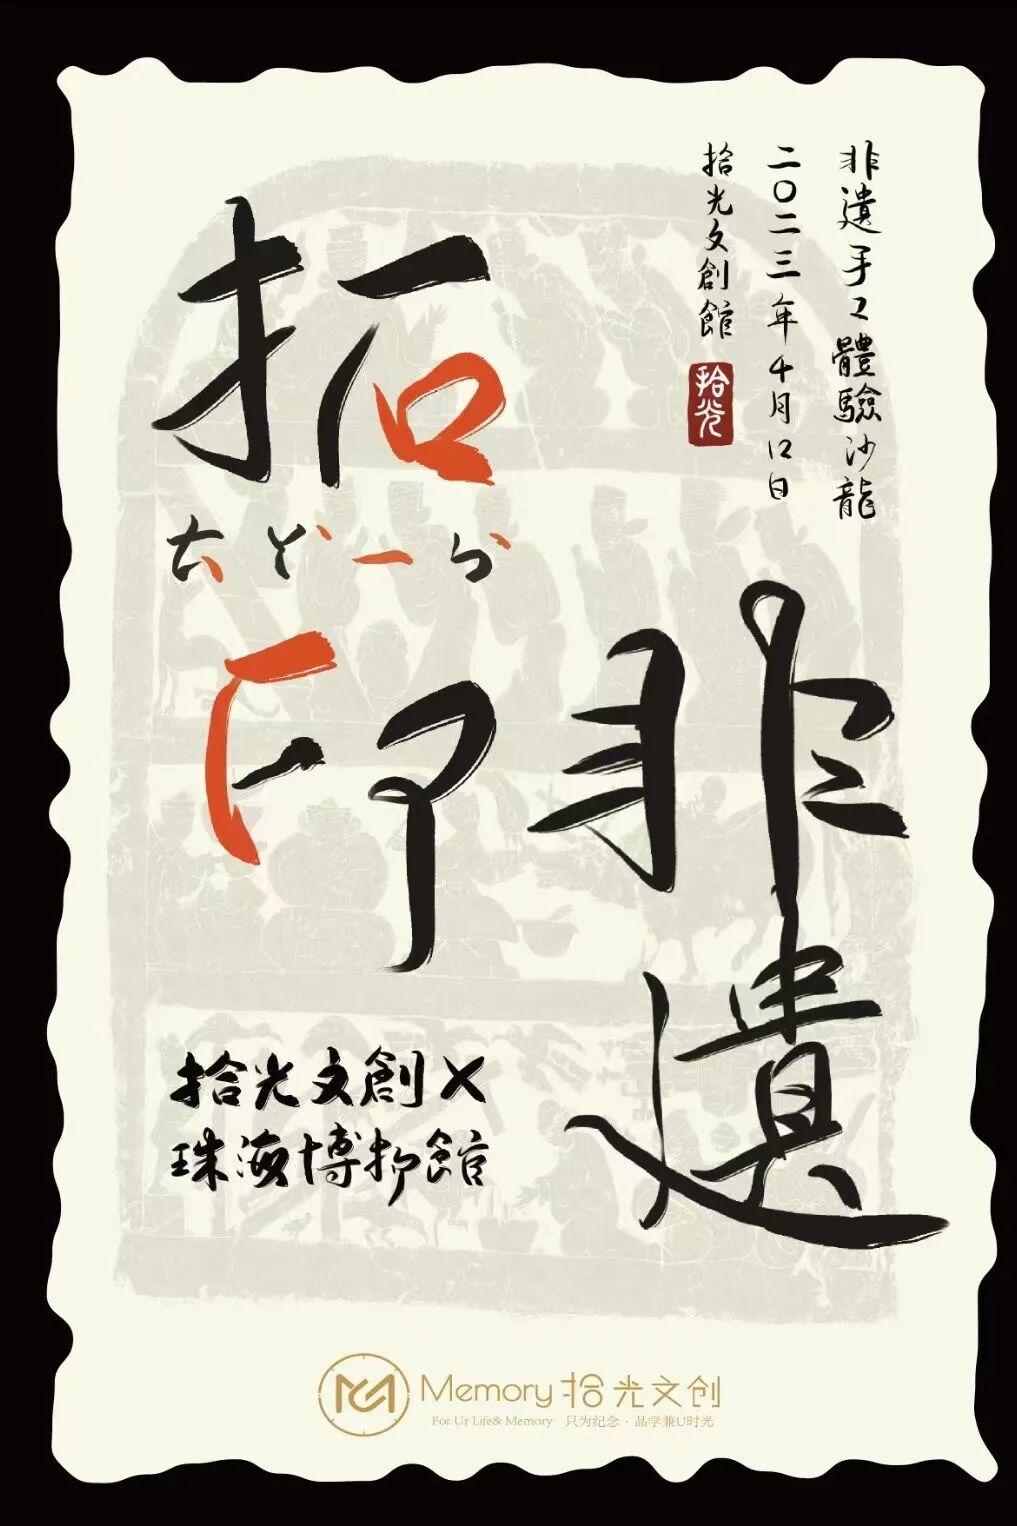 非遺手工體驗沙龍
二〇二三年4月12日
拾光文創館
拾光
拓
ㄊㄚˋㄧㄣˋ
印
非遺
拾光文創X
珠海博物館
Memory 拾光文创
For Ur Life& Memory 只为纪念·品学兼U时光